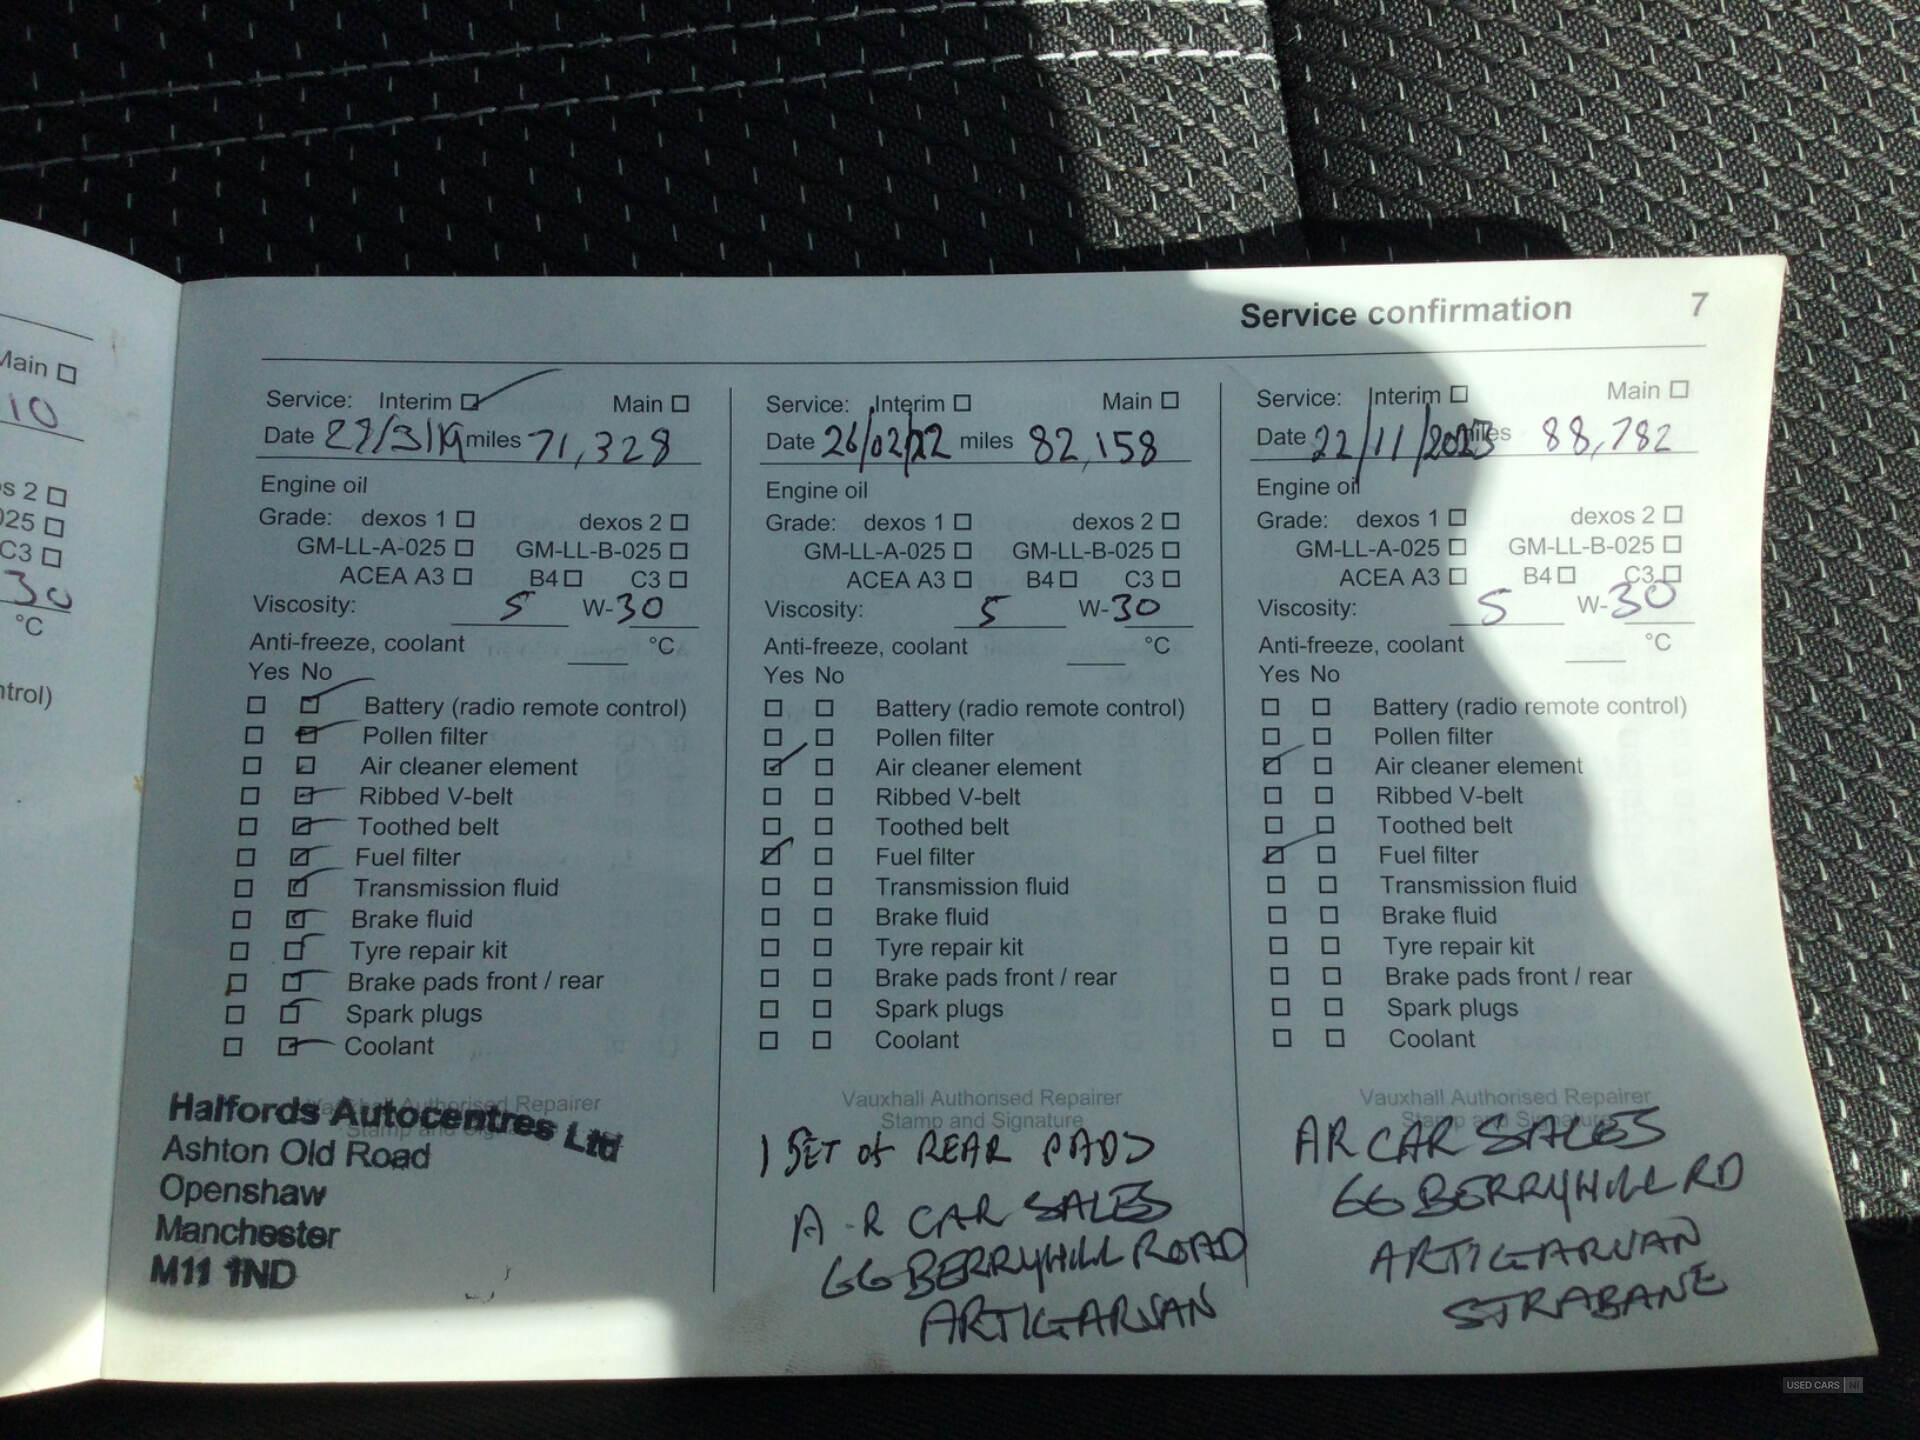 Main
10
s 2
025
C3
30
°C
ntrol)
Service confirmation 7
Service: Interim Main
Date 29/3/19 miles 71,328
Engine oil
Grade: dexos 1 dexos 2
GM-LL-A-025 GM-LL-B-025
ACEA A3 B4 C3
Viscosity: 5 W-30
Anti-freeze, coolant °C
Yes No
Battery (radio remote control)
Pollen filter
Air cleaner element
Ribbed V-belt
Toothed belt
Fuel filter
Transmission fluid
Brake fluid
Tyre repair kit
Brake pads front / rear
Spark plugs
Coolant
Vauxhall Authorised Repairer
Stamp and Signature
Halfords Autocentres Ltd
Ashton Old Road
Openshaw
Manchester
M11 1ND
Service: Interim Main
Date 26/02/22 miles 82,158
Engine oil
Grade: dexos 1 dexos 2
GM-LL-A-025 GM-LL-B-025
ACEA A3 B4 C3
Viscosity: 5 W-30
Anti-freeze, coolant °C
Yes No
Battery (radio remote control)
Pollen filter
Air cleaner element
Ribbed V-belt
Toothed belt
Fuel filter
Transmission fluid
Brake fluid
Tyre repair kit
Brake pads front / rear
Spark plugs
Coolant
Vauxhall Authorised Repairer
Stamp and Signature
1 SET of REAR PADS
A-R CAR SALES
66 BERRYHILL ROAD
ARTIGARVAN
Service: Interim Main
Date 22/11/2023 miles 88,782
Engine oil
Grade: dexos 1 dexos 2
GM-LL-A-025 GM-LL-B-025
ACEA A3 B4 C3
Viscosity: 5 W-30
Anti-freeze, coolant °C
Yes No
Battery (radio remote control)
Pollen filter
Air cleaner element
Ribbed V-belt
Toothed belt
Fuel filter
Transmission fluid
Brake fluid
Tyre repair kit
Brake pads front / rear
Spark plugs
Coolant
Vauxhall Authorised Repairer
Stamp and Signature
AR CAR SALES
66 BERRYHILL RD
ARTIGARVAN
STRABANE
USED CARS NI